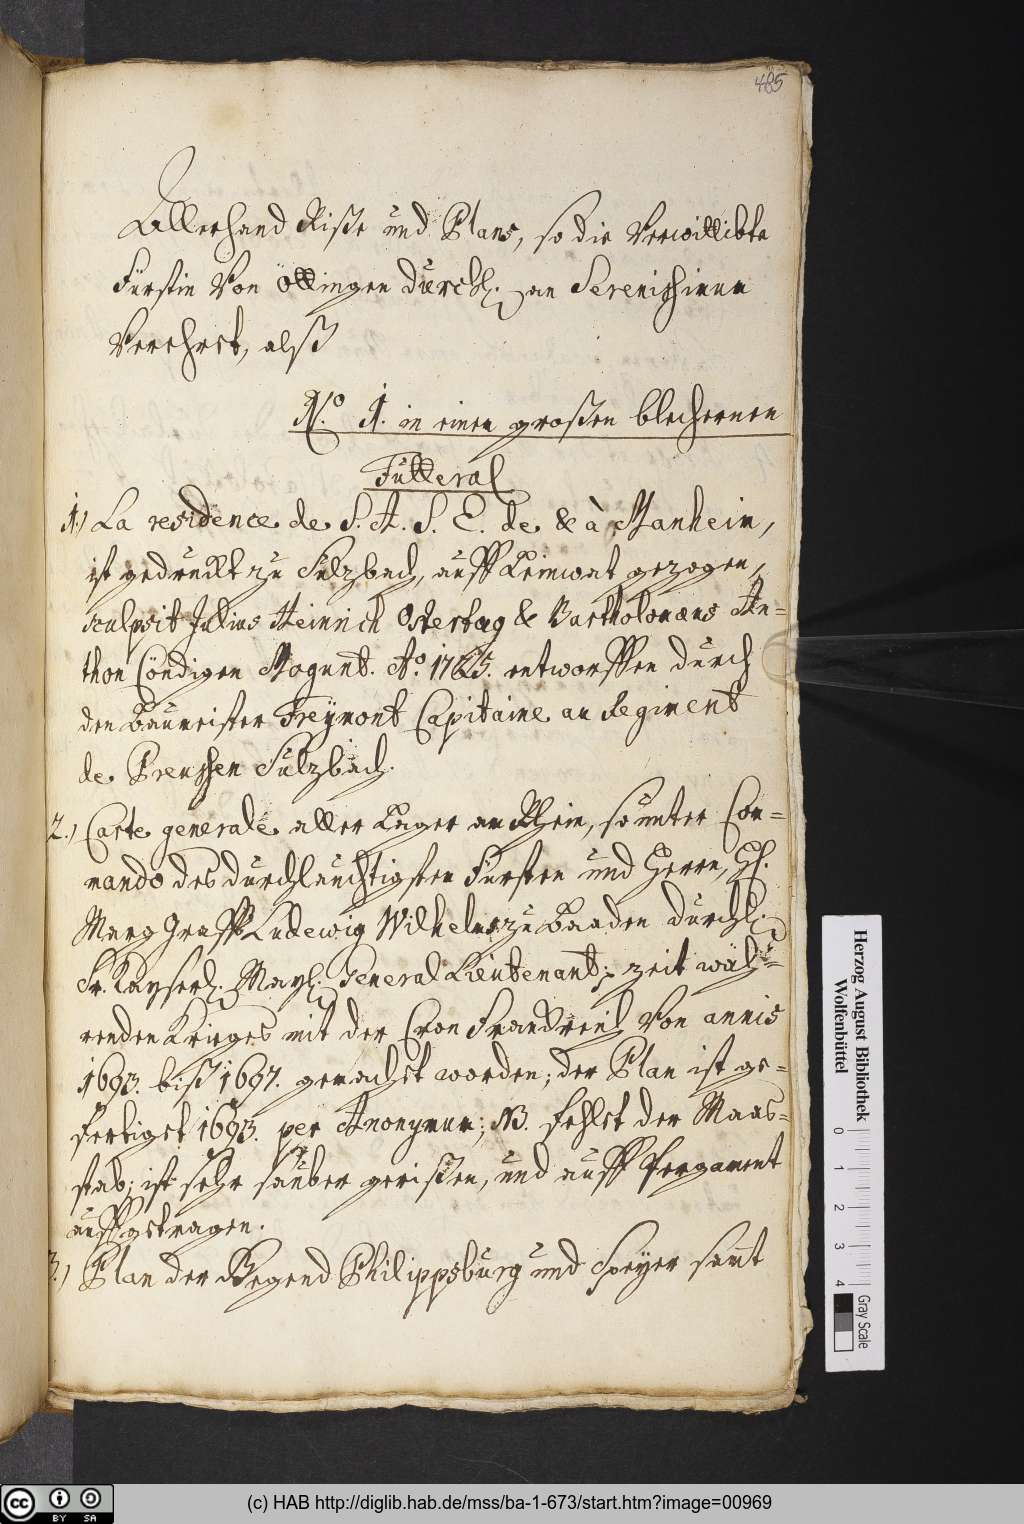 485
Allerhand Riße und Plans, so die Verwittibte
Fürstin Von Öttingen Durchl. an Serenissimum
Verehret, alß
N.o 1. in einem großen blechernen
Futteral
1.) La residence de S. A. S. E. de & à Manheim,
ist gedruckt zu Sulzbach, auff Leinwat gezogen,
sculpsit Julius Heinrich Ostertag & Bartholomæus An=
thon Cöndigen Mogunt. Ao. entworffen durch
den Baumeister Freymont Capitaine au Regiment
de Preussen Sulzbach.
2.) Carte generale aller Lager am Rhein, so unter Com=
mando des durchleuchtigsten Fürsten und Herrn, H.
Marg Graff Ludewig Wilhelm zu Baaden Durchl.
Sr. Kayserl. May. General Lieutenant; zeit wäh=
renden Krieges mit der Cron Franckreich Von annis
1693. biß 1697. gemacht worden; der Plan ist ge=
fertiget 1693. per Anonymum; NB. fehlet der Maas=
stab; ist sehr sauber gerißen, und auff Pergament
auffgetragen.
3.) Plan der Gegend Philippsburg und Speyer samt
Herzog August Bibliothek
Wolfenbüttel
0 1 2 3 4
Gray Scale
(c) HAB http://diglib.hab.de/mss/ba-1-673/start.htm?image=00969
cc BY SA